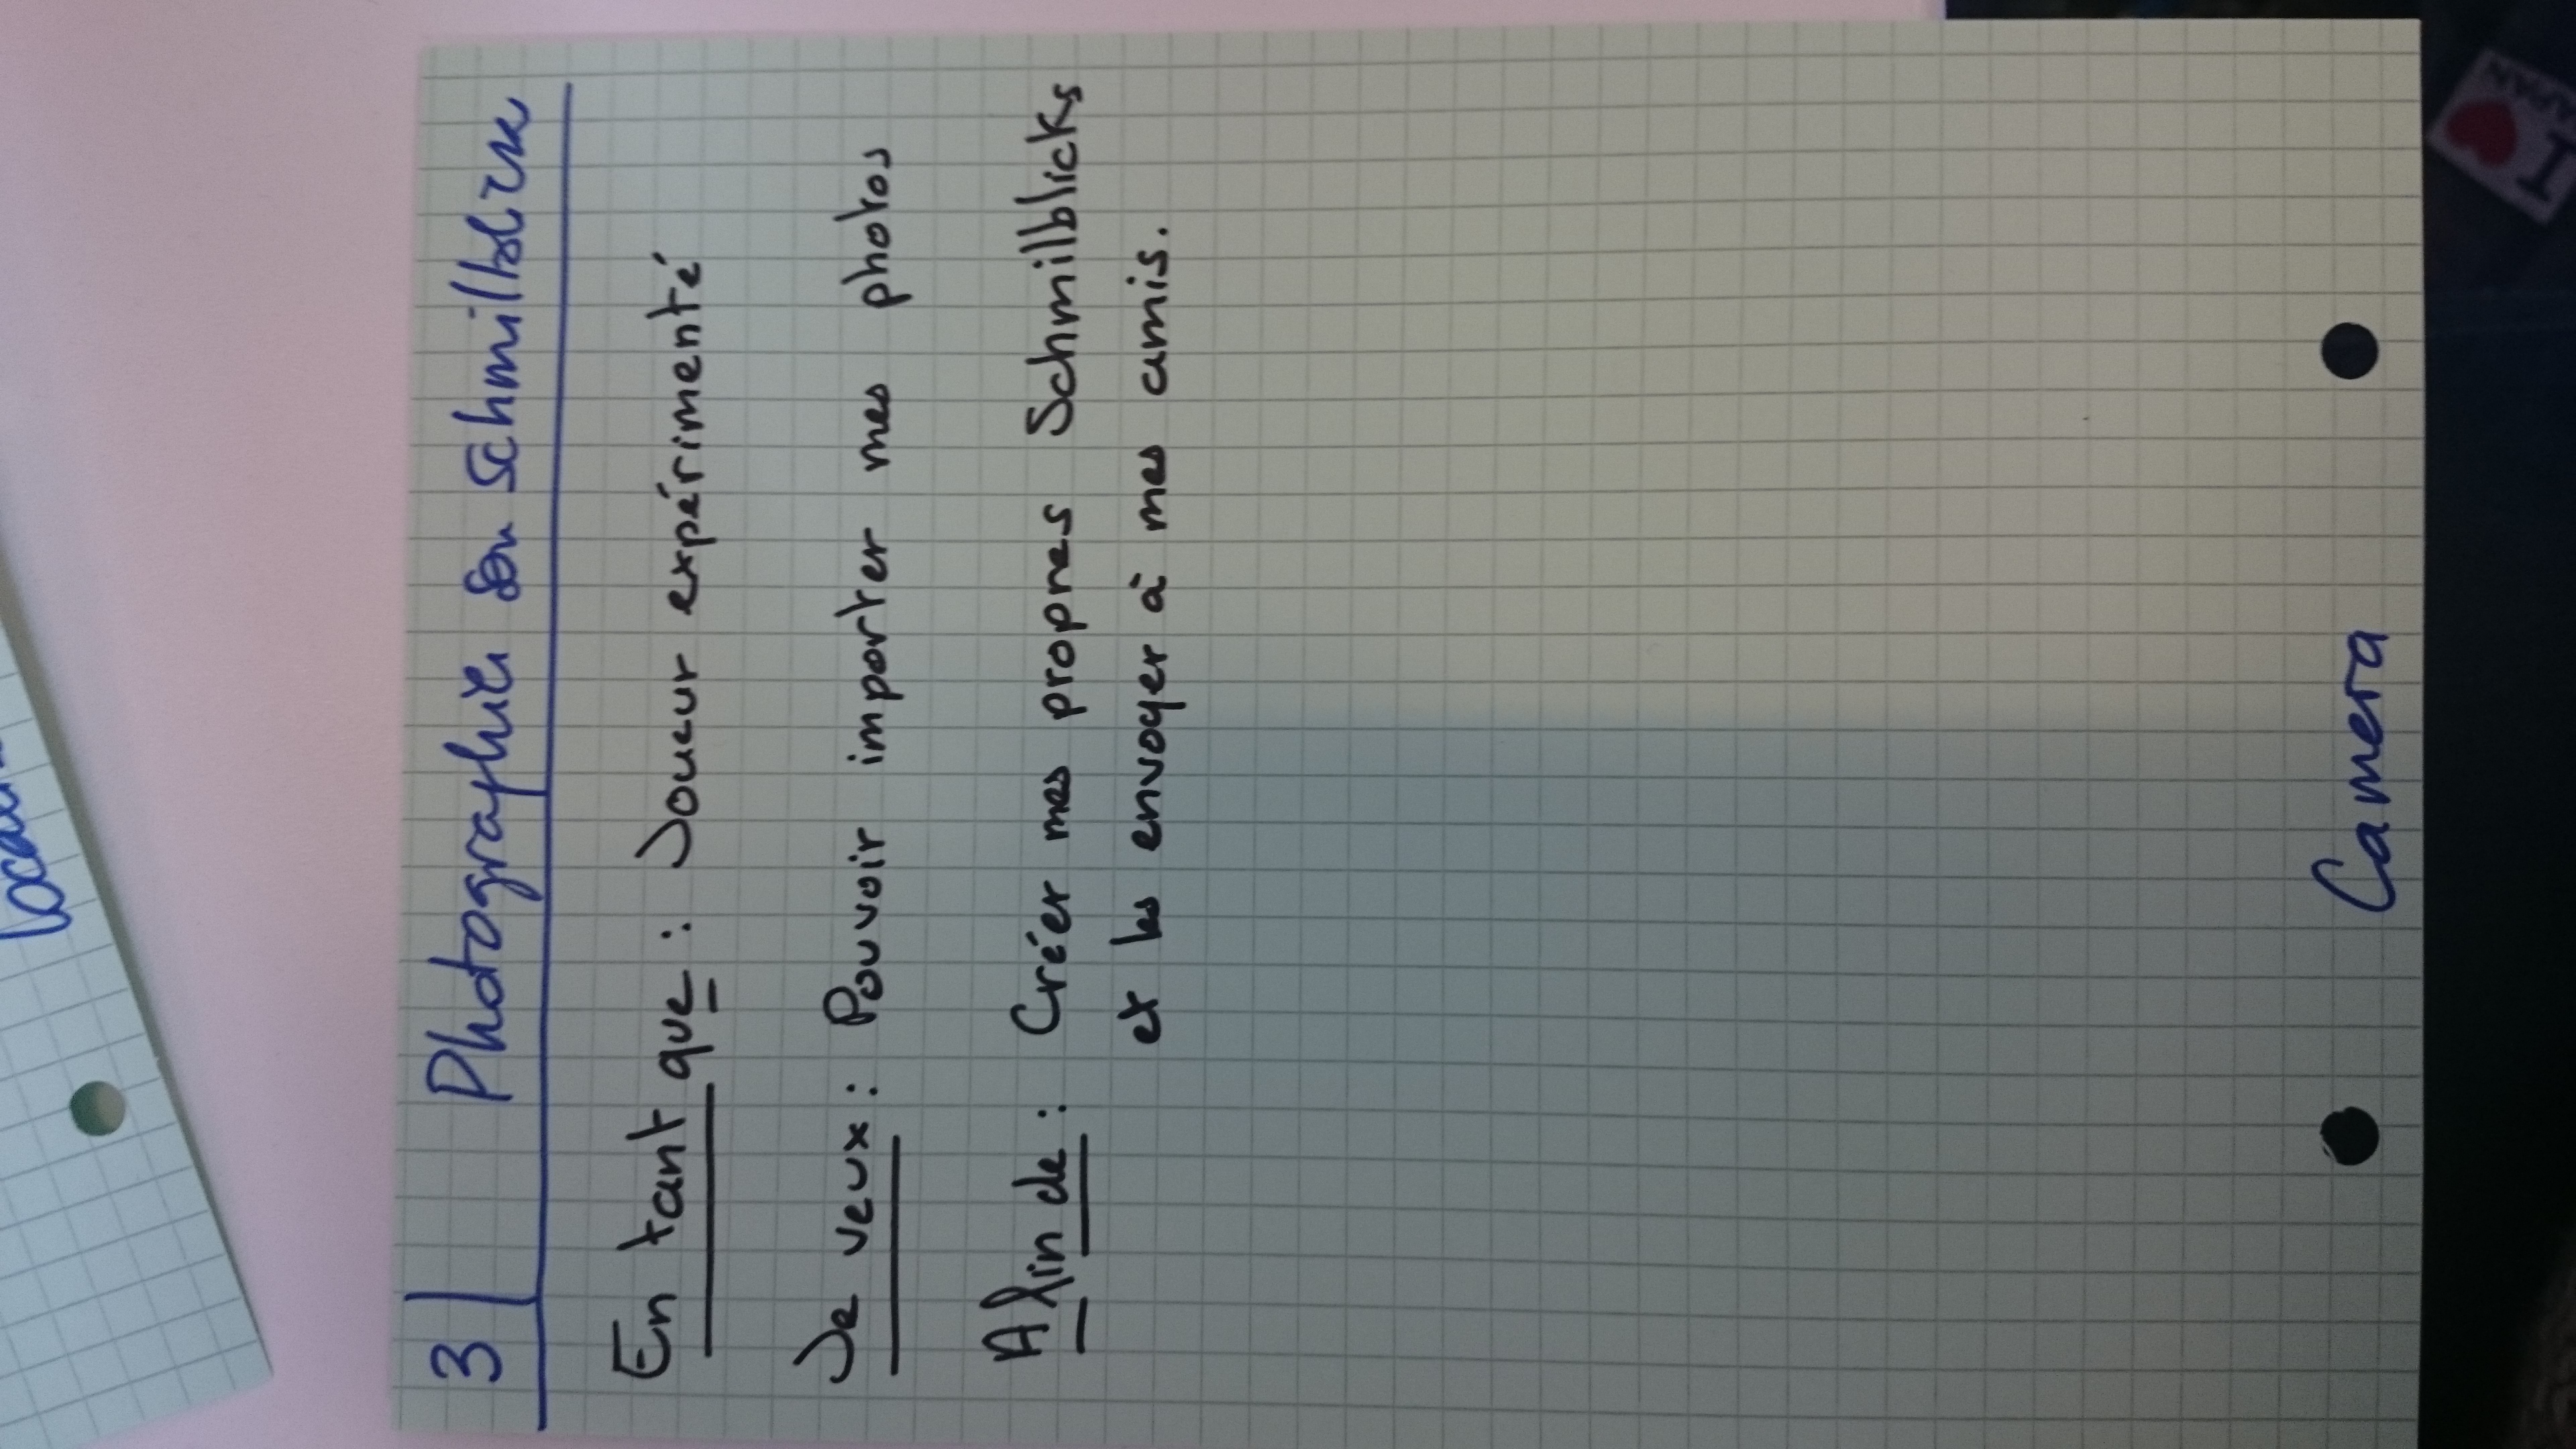 3 Photographier son schmilblick
En tant que : Joueur expérimenté
Je veux : Pouvoir importer mes photos
Afin de : Créer mes propres Schmilblicks
et les envoyer à mes amis.
Camera
I